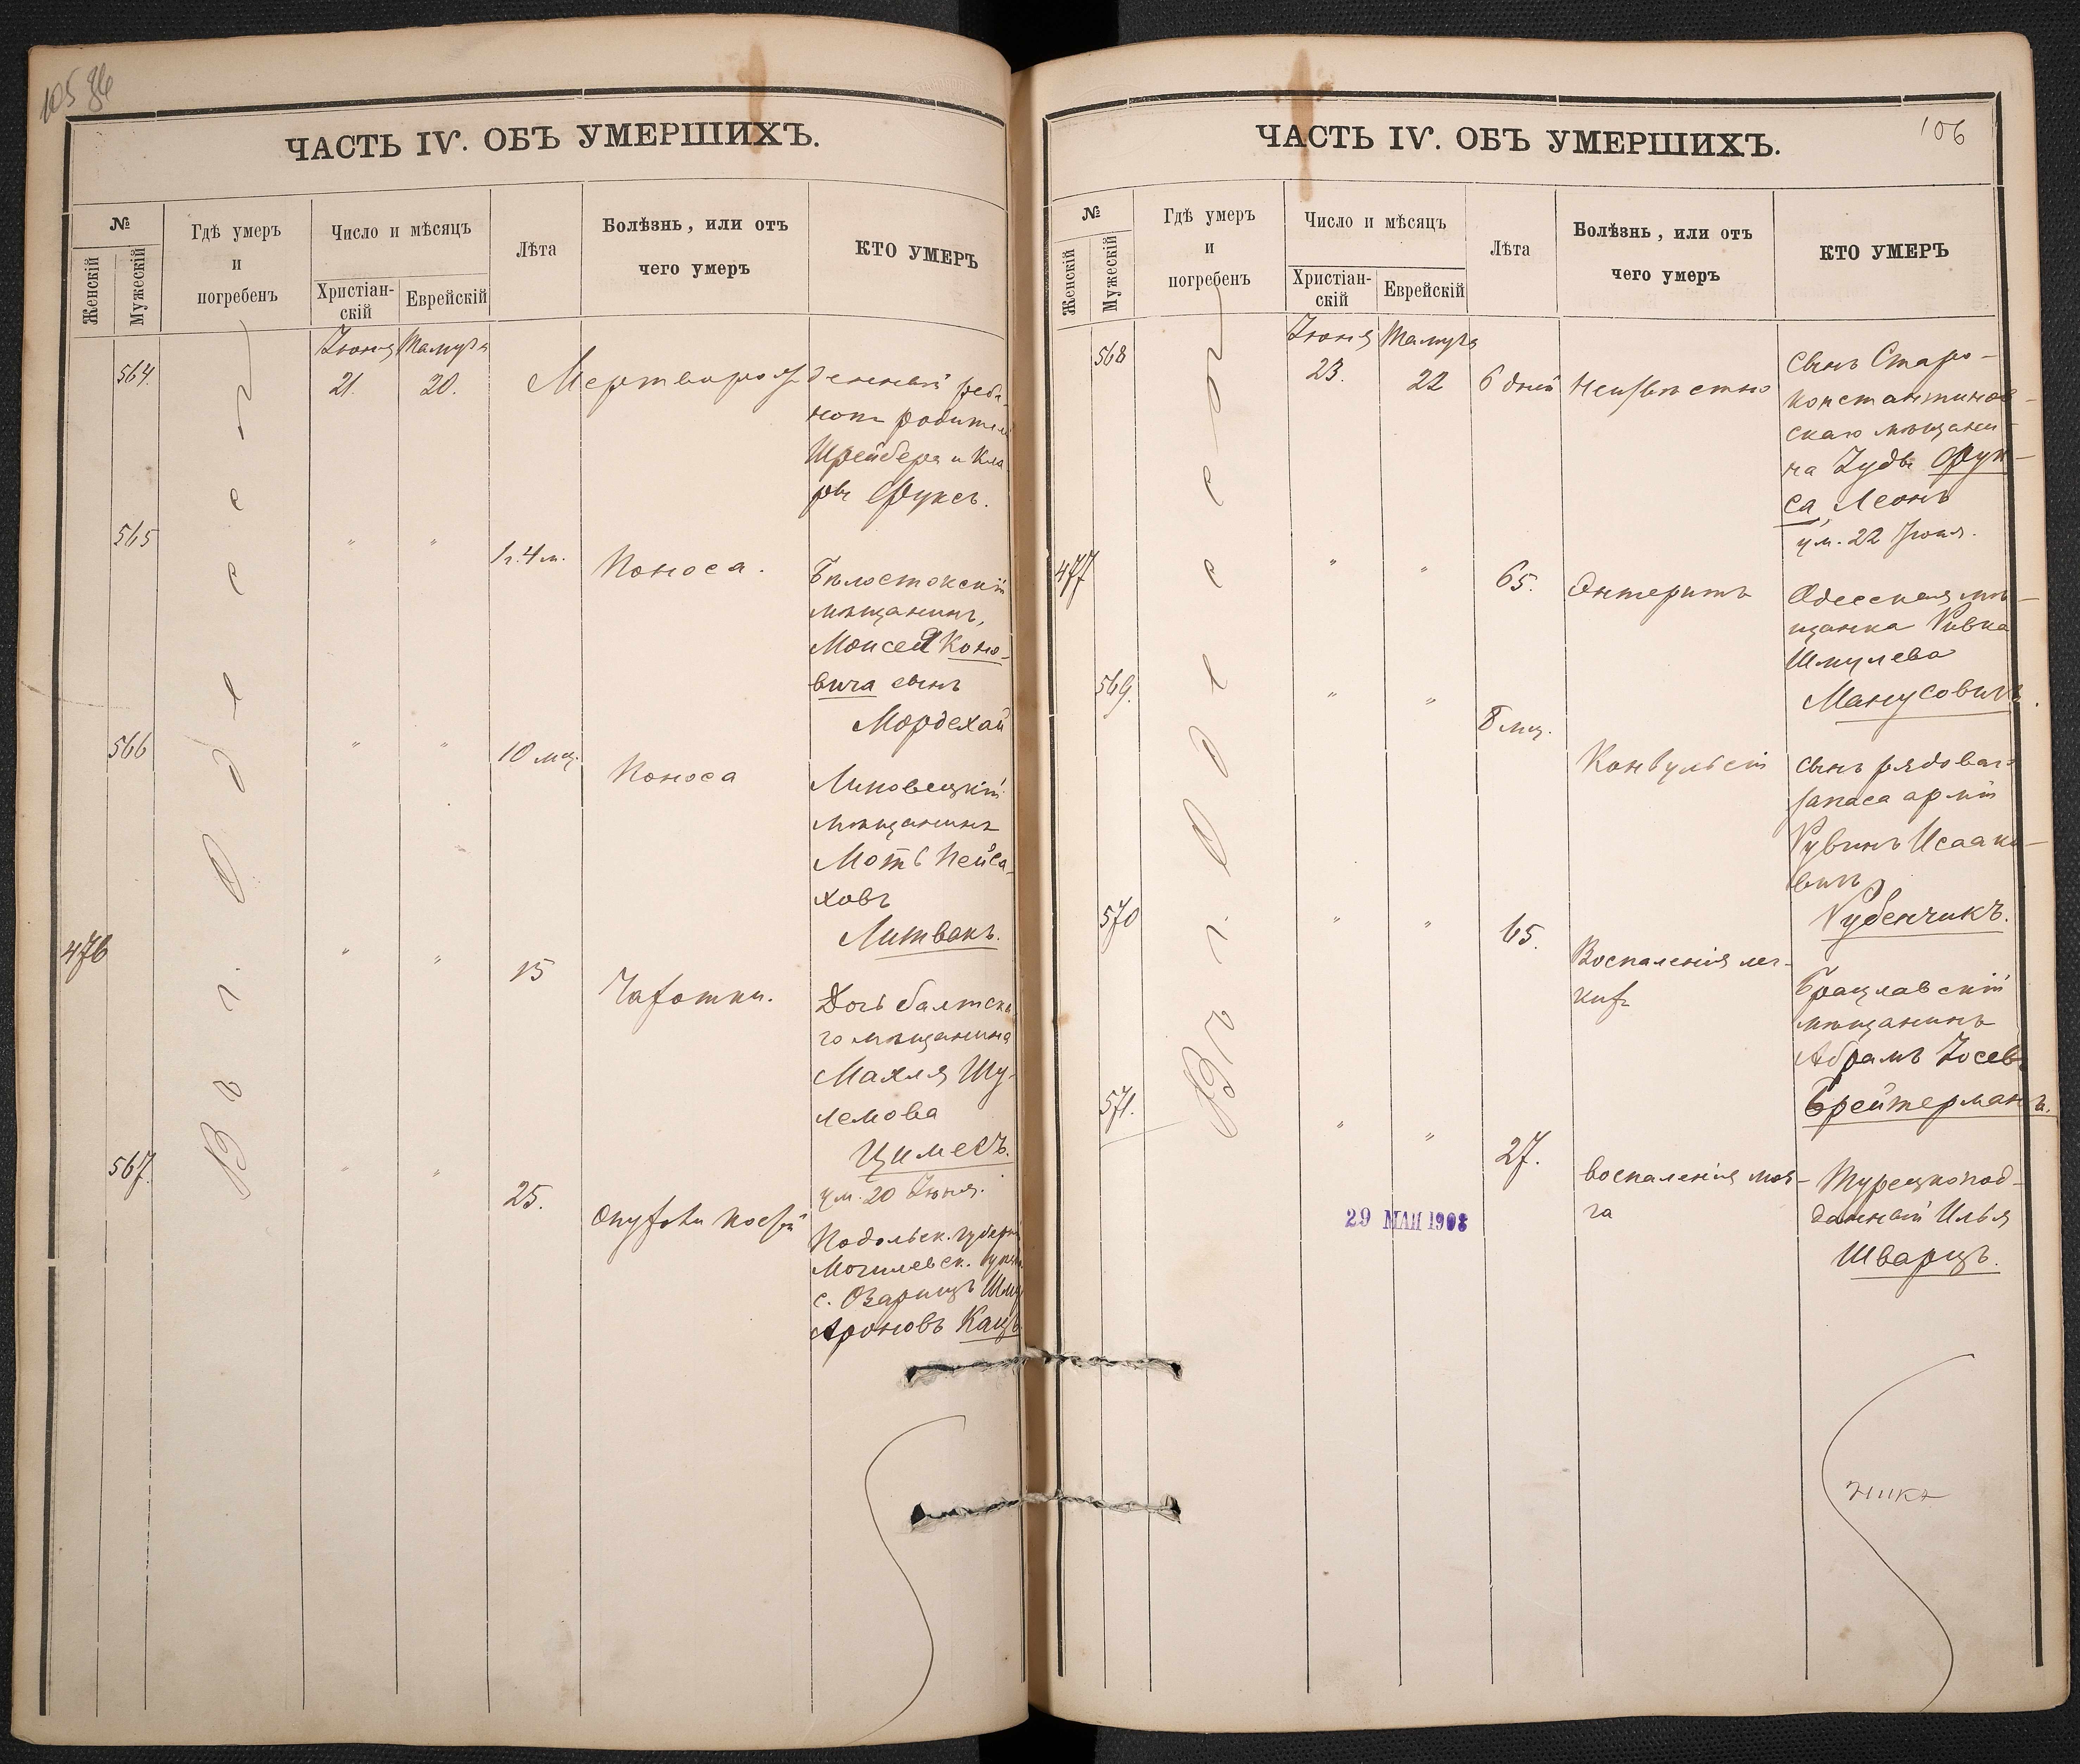 105 86
ЧАСТЬ IV. ОБЪ УМЕРШИХЪ.
№
Женскій
Мужескій
Гдѣ умеръ
и
погребенъ
Число и мѣсяцъ
Христіан-
скій
Еврейскій
Лѣта
Болѣзнь, или отъ
чего умеръ
КТО УМЕРЪ
Въ г. Одессѣ
564.
Іюня Тамуза
21. 20.
Мертворожденный ребе-
нокъ родителей
Шрейбера и Кла-
ры Фуксъ.
565
" "
1 г. 4 м.
Поноса.
Бѣлостокскій
мѣщанинъ,
Моисея Коно-
вича сынъ
Мордехай
566
" "
10 мц.
Поноса
Липовецкій
мѣщанинъ
Мотъ Пейса-
ховъ
Литвакъ.
476
" "
15
Чахотки.
Дочь балтска
го мѣщанина
Махля Шу-
лемова
Цимесъ.
ум. 20 Іюня.
567.
" "
25.
Опухоли
Подольск. губерніи
Могилевск. уѣзда
с. Озаринцъ
Ароновъ Кацъ
106
ЧАСТЬ IV. ОБЪ УМЕРШИХЪ.
№
Женскій
Мужескій
Гдѣ умеръ
и
погребенъ
Число и мѣсяцъ
Христіан-
скій
Еврейскій
Лѣта
Болѣзнь, или отъ
чего умеръ
КТО УМЕРЪ
Въ г. Одессѣ
568
Іюня Тамуза
23. 22
6 дней
Неизвѣстно
Сынъ Старо-
константинов-
скаго мѣщани-
на Іуды Фук-
са, Леонъ
ум. 22 Іюня.
477
" "
65.
Энтеритъ
Одесская мѣ-
щанка Ривка
Шмулева
Манусовичъ.
569.
" "
8 мц.
Конвульсіи
Сынъ рядоваго
запаса арміи
Рувинъ Исаако-
вичъ
Рубенчикъ.
570
" "
65.
Воспаленія лег-
кихъ
Брацлавскій
мѣщанинъ
Абрамъ Іосевъ
Брейтерманъ.
571.
" "
27.
воспаленія моз-
га
Турецкопод-
данный Илья
Шварцъ.
29 МАЙ 1908